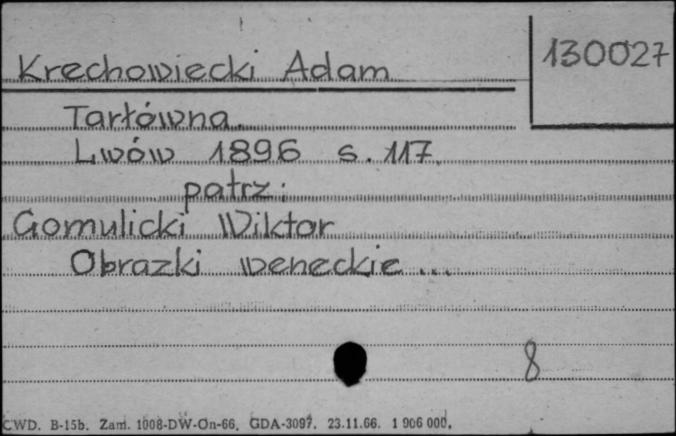 130027
Krechowiecki Adam
Tarłówna.
Lwów 1896 s. 117.
patrz:
Gomulicki Wiktor
Obrazki weneckie...
8
CWD. B-15b. Zam. 1008-DW-On-66. GDA-3097. 23.11.66. 1 906 000.